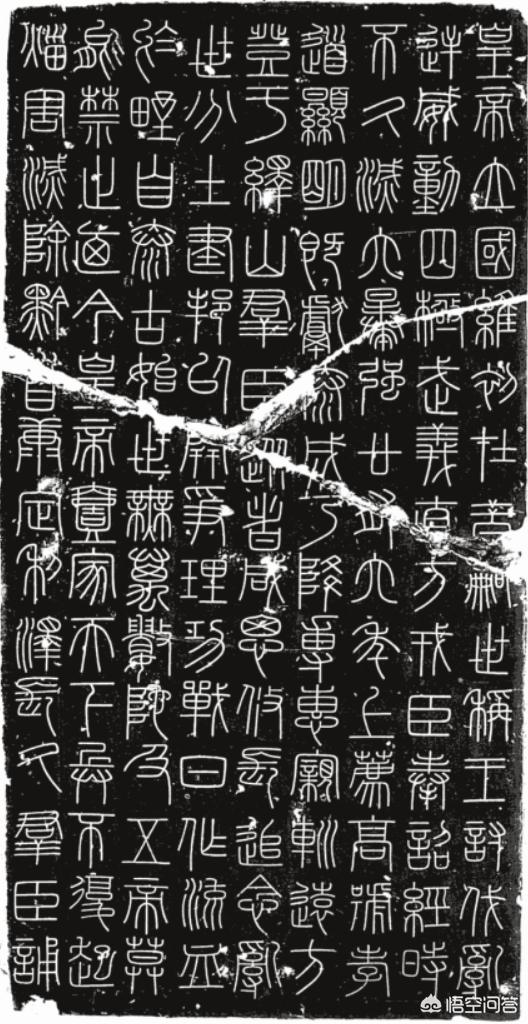 皇帝立國維初在昔嗣世稱王討伐亂
逆威動四極武義直方戎臣奉詔經時
不久滅六暴強廿有六年上薦高號孝
道顯明既獻泰成乃降專惠寴巡遠方
登于繹山羣臣從者咸思攸長追念亂
世分土建邦以開爭理功戰日作流血
於野自泰古始世無萬數陀及五帝莫
能禁止廼今皇帝壹家天下兵不復起
災害滅除黔首康定利澤長久羣臣誦
悟空问答